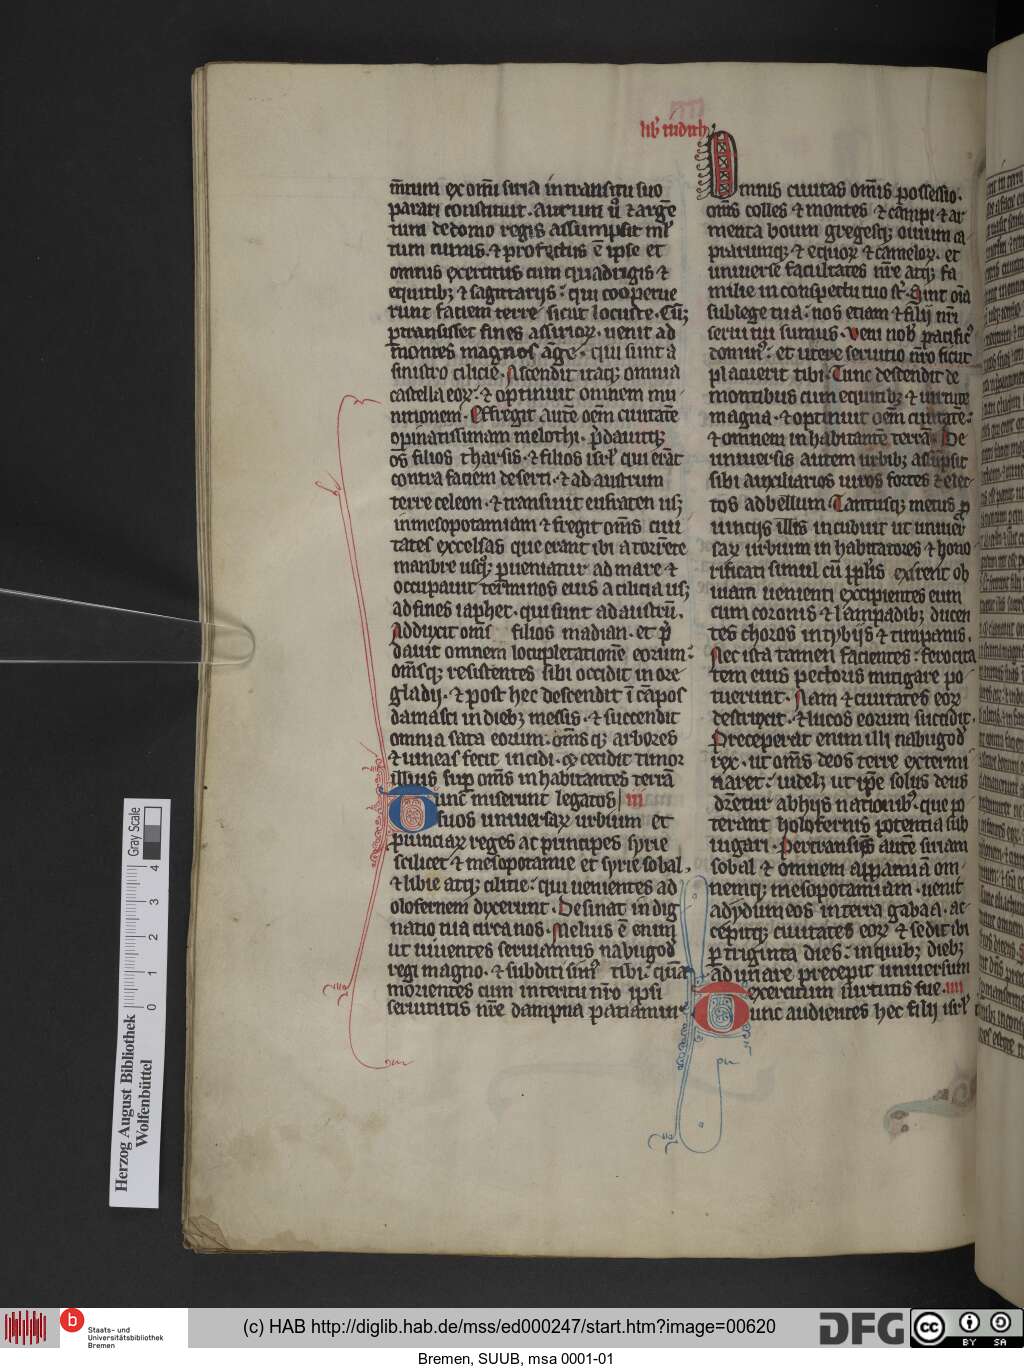 lib' iudith
m̄tum ex om̄i siria in transitu suo
parari constituit. Aurum ů ⁊ argē
tum de domo regis assumpsit ml'
tum nimis. ⁊ profectus ē ipse et
omnis exercitus cum quadrigis ⁊
equitib; ⁊ sagittarijs: qui cooperue
runt faciem terre sicut locuste. Cū;
ptransisset fines assirioꝝ. uenit ad
montes magnos āge. qui sunt a
sinistro cilicie. Ascendit itaq; omnia
castella eoꝝ: ⁊ optinuit omnem mu
nitionem. Effregit autē oēm ciuitatē
opinatissimam melothi. p̄dauitq;
os̄ filios tharsis. ⁊ filios isrł qui erāt
contra faciem deserti. ⁊ ad austrum
terre celeon. ⁊ transiuit eufraten ⁊
in mesopotamiam ⁊ fregit om̄is ciui
tates excelsas que erant ibi a torrēte
manbre usq; pueniatur ad mare ⁊
occupauit terminos eius a cilicia us;
ad fines iaphet. qui sunt ad austrū.
Adduxit om̄s filios madian. et p̄
dauit omnem locupletationē eorum:
om̄sq; resistentes sibi occidit in ore
gladij. ⁊ post hec descendit ī cāpos
damasci in dieb; messis. ⁊ succendit
omnia sata eorum. om̄s q; arbores
⁊ uineas fecit incidi. ⁊ cecidit timor
illius sup om̄s inhabitantes terrā
Tunc miserunt legatos III
suos uniuersaꝝ urbium et
puinciaꝝ reges ac principes syrie
scilicet ⁊ mesopotamie et syrie sobal.
⁊ libie atq; cilicie: qui uenientes ad
olofernem dixerunt. Desinat indig
natio tua circa nos. Melius ē enim
ut uiuentes seruiamus nabugod
regi magno. ⁊ subditi sim' tibi: quā
morientes cum interitu nr̄o ipsi
seruitutis nr̄e dampna patiamur
Omnis ciuitas om̄is possessio.
om̄s colles ⁊ montes ⁊ cāmpi ⁊ ar
menta boum gregesq; ouium ca
prarumq; ⁊ equoꝝ ⁊ cameloꝝ. et
uniuerse facultates nr̄e atq; fa
milie in conspectu tuo st'. Sint oīa
sub lege tua: nos etiam ⁊ filij nr̄i
serui tui sumus. Veni nob' pacific'
domin': et utere seruitio nr̄o sicut
placuerit tibi. Tunc descendit de
montibus cum equitib; ⁊ uirtute
magna. ⁊ optinuit oēm ciuitatē:
⁊ omnem inhabitantē terrā. De
uniuersis autem urbib; assūpsit
sibi auxiliarios uiros fortes ⁊ elec
tos ad bellum. Tantusq; metus p
uincijs illis incubuit ut uniuer
saꝝ urbium inhabitatores ⁊ hono
rificati simul cū pplis exirent ob
uiam uenienti excipientes eum
cum coronis ⁊ lāmpadib; ducen
tes choros in tybijs ⁊ timpanis.
Nec ista tamen facientes: ferocita
tem eius pectoris mitigare po
tuerunt. Nam ⁊ ciuitates eoꝝ
destruxit. ⁊ lucos eorum succidit.
Preceperat enim illi nabugod
rex. ut om̄s deos terre extermi
naret: uidel; ut ipe solus deus
diceretur ab hijs nationib'. que po
terant holofernis potentia sub
iugari. Pertransiens autē siriam
sobal ⁊ omnem appamiā om
nemq; mesopotamiam. uenit
ad ydumeos in terra gabaa. ac
cepitq; ciuitates eoꝝ ⁊ sedit ibi
p triginta dies: in quib; dieb;
adunare precepit uniuersum
exercitum uirtutis sue. IIII
Tunc audientes hec filij isrł
Herzog August Bibliothek
Wolfenbüttel
Gray Scale
0 1 2 3 4
b
Staats- und
Universitätsbibliothek
Bremen
(c) HAB http://diglib.hab.de/mss/ed000247/start.htm?image=00620
DFG
cc
BY SA
Bremen, SUUB, msa 0001-01